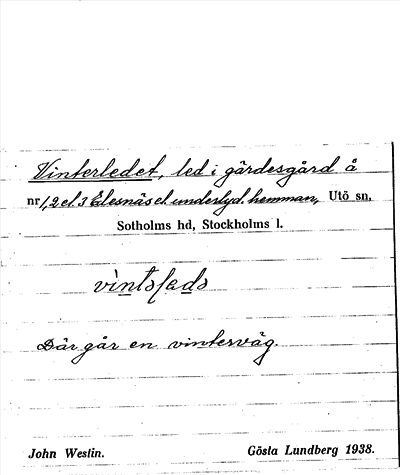 Vinterledet, led i gärdesgård å
nr 1, 2 el. 3 Edesnäs el. underlyd. hemman, Utö sn,
Sotholms hd, Stockholms l.
Där går en vinterväg.
John Westin. Gösta Lundberg 1938.